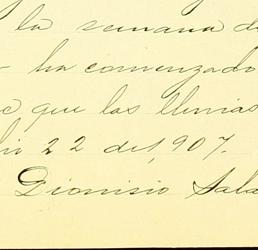 la semana de
ha comenzado
que las lluvias
22 de 1,907.
Dionisio Sala